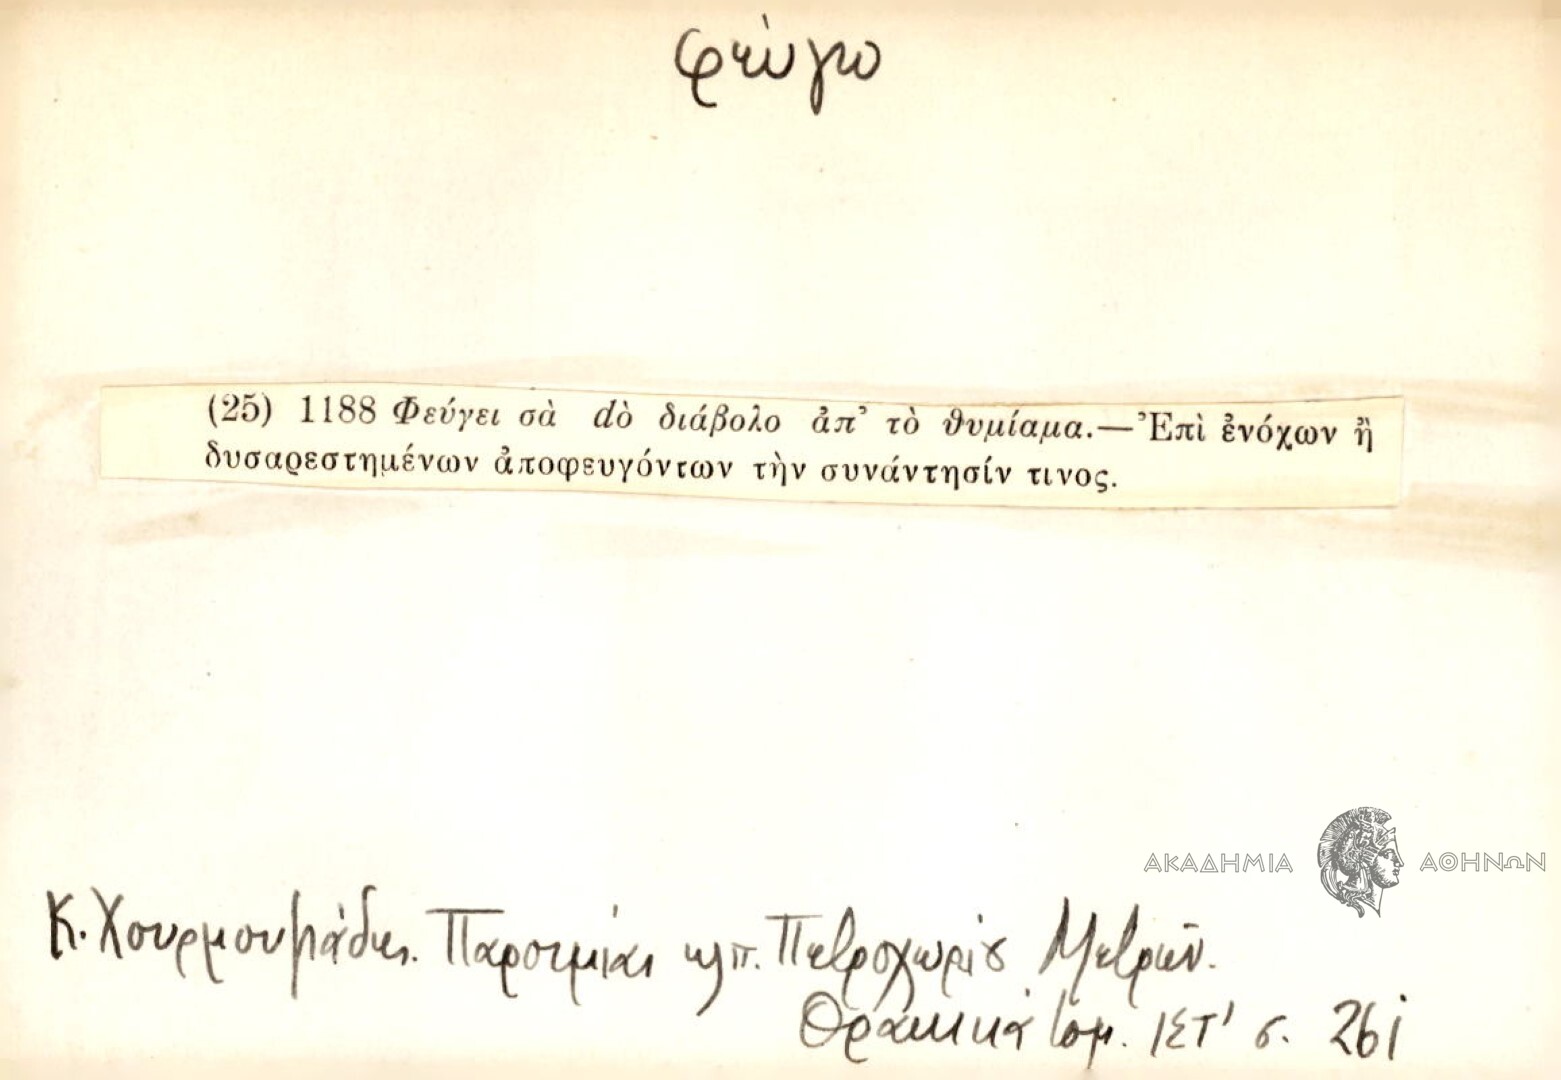 φεύγω
(25) 1188 Φεύγει σὰ dὸ διάβολο ἀπ’ τὸ θυμίαμα.—Ἐπὶ ἐνόχων ἢ
δυσαρεστημένων ἀποφευγόντων τὴν συνάντησίν τινος.
ΑΚΑΔΗΜΙΑ ΑΘΗΝΩΝ
Κ. Χουρμουζιάδης. Παροιμίαι κλπ. Πετροχωρίου Μετρῶν.
Θρακικά τομ. ΙΣΤ' σ. 261